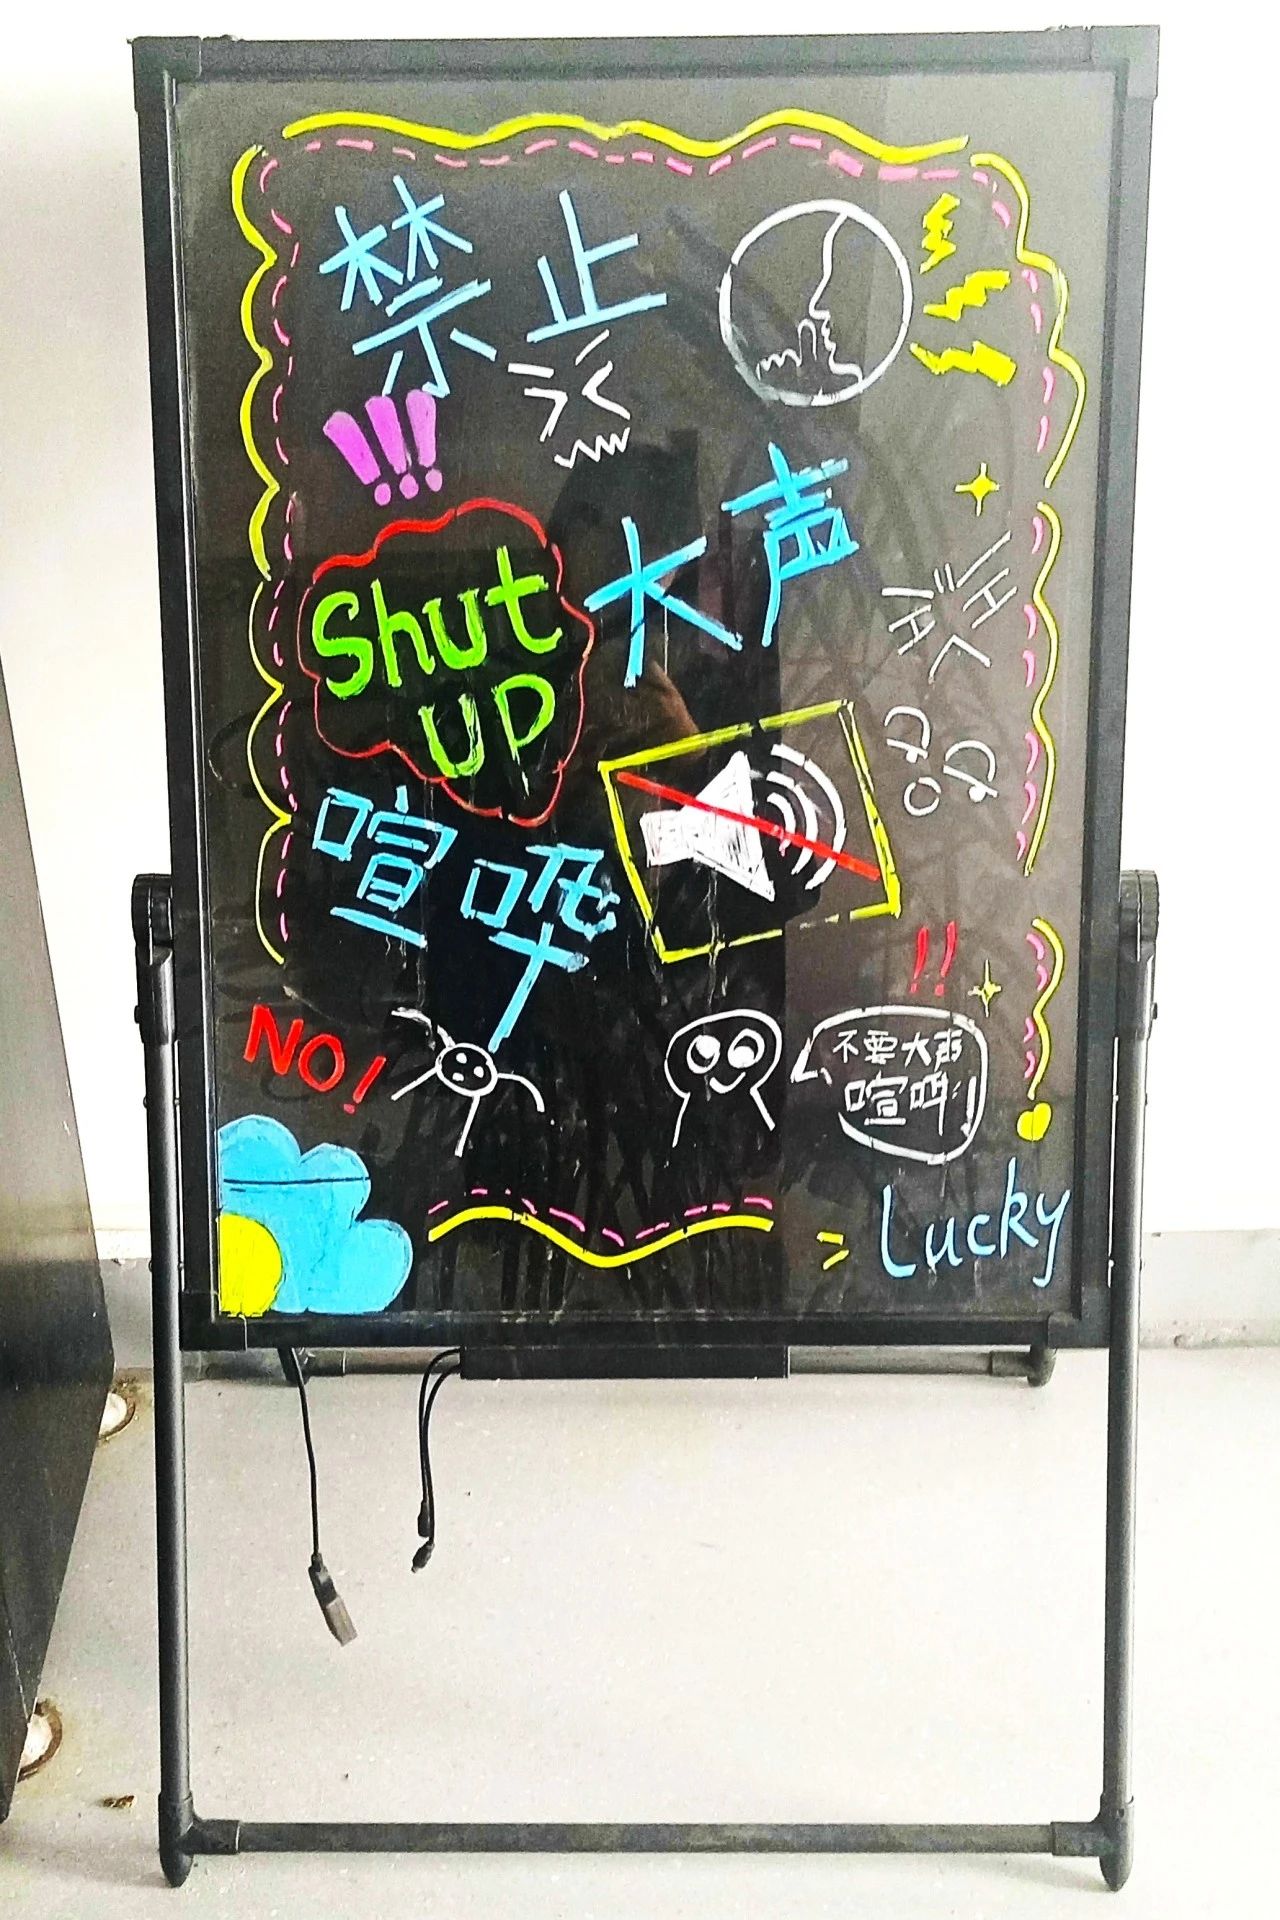 禁止
!!!
大声
Shut
UP
喧哗
NO!
!!
不要大声
喧哗!
Lucky